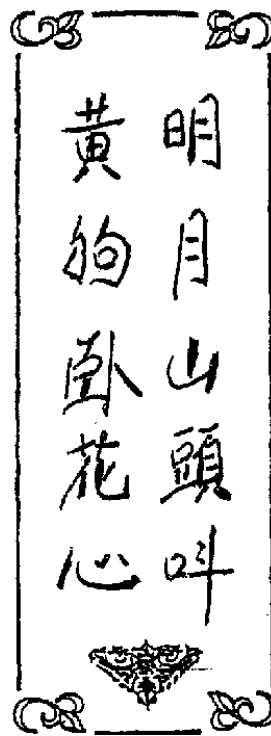 明月山頭叫
黃狗臥花心